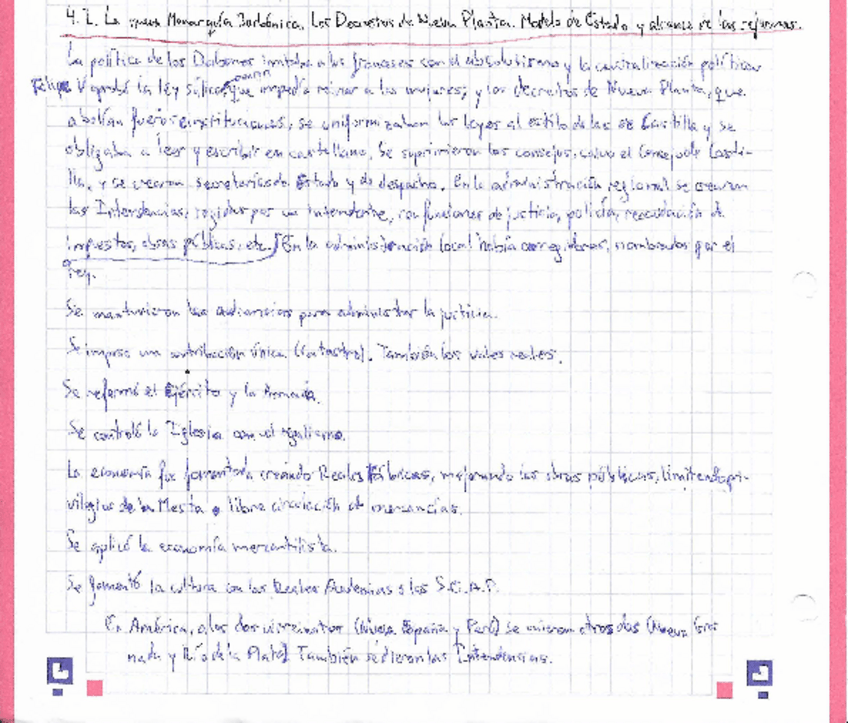 4.2. La nueva Monarquía Borbónica. Los Decretos de Nueva Planta. Modelo de Estado y alcance de las reformas.
La política de los Borbones imitaba a los franceses con el absolutismo y la centralización política.
Felipe V aprobó la ley sálica, que impedía reinar a las mujeres; y los decretos de Nueva Planta, que
abolían fueros e instituciones, se uniformizaban las leyes al estilo de las de Castilla y se
obligaba a leer y escribir en castellano. Se suprimieron los consejos, salvo el Consejo de Casti-
lla, y se crearon secretarías de Estado y de despacho. En la administración regional se crearon
las Intendencias, regidas por un intendente, con funciones de justicia, policía, recaudación de
impuestos, obras públicas, etc. En la administración local había corregidores, nombrados por el
rey.
Se mantuvieron las audiencias para administrar la justicia.
Se impuso una contribución única (catastro). También los vales reales.
Se reformó el Ejército y la Armada.
Se controló la Iglesia con el regalismo.
La economía fue fomentada creando Reales Fábricas, mejorando las obras públicas, limitando pri-
vilegios de la Mesta o libre circulación de mercancías.
Se aplicó la economía mercantilista.
Se fomentó la cultura con las Reales Academias y las S.E.A.P.
En América, a los dos virreinatos (Nueva España y Perú) se unieron otros dos (Nueva Gra
nada y Río de la Plata). También se dieron las Intendencias.